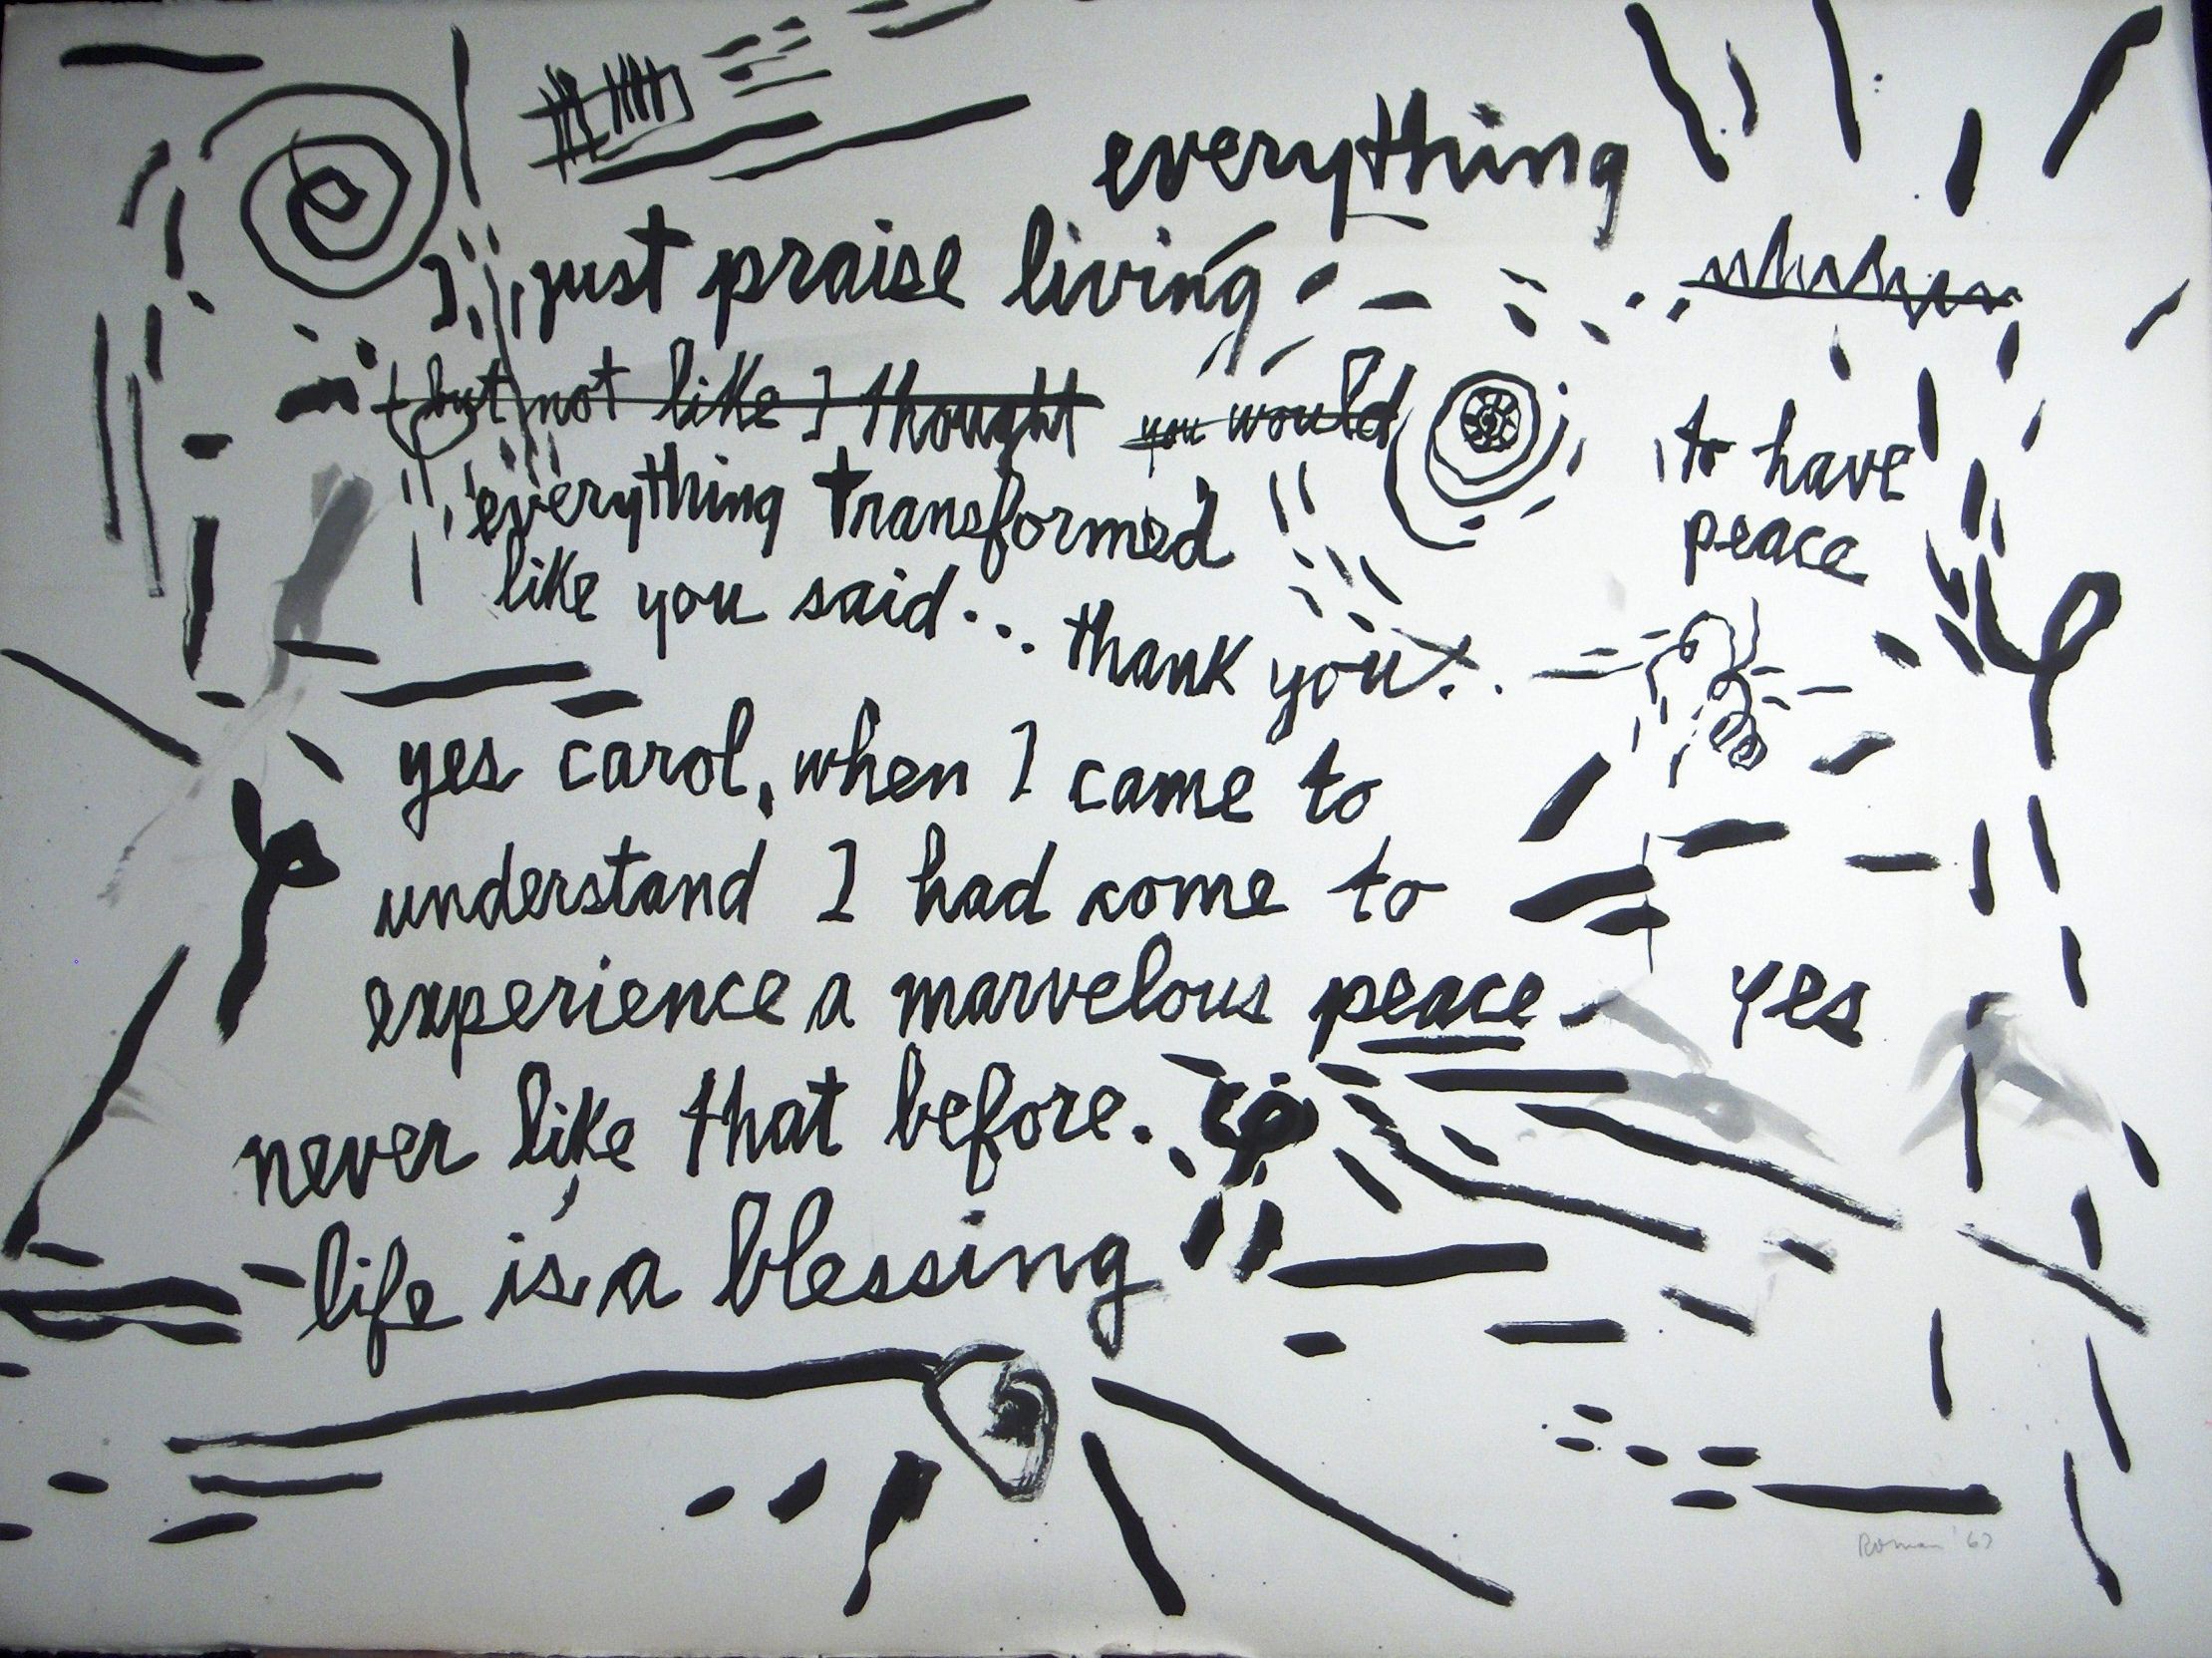 everything
I just praise living
but not like I thought you would
everything transformed
like you said... thank you..
to have
peace
yes carol, when I came to
understand I had come to
experience a marvelous peace -
yes
never like that before.
life is a blessing
Roman '67